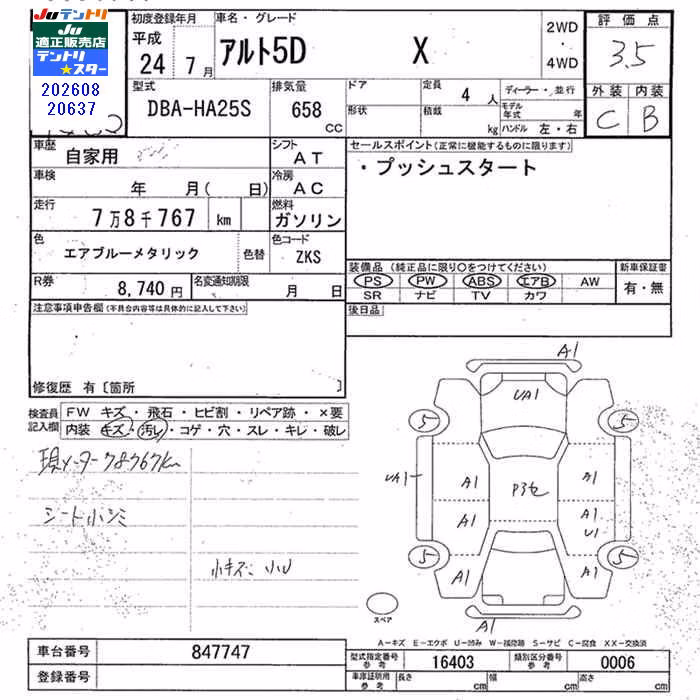 JUテントリ
JU
適正販売店
テントリ
★スター
202608
20637
初度登録年月
平成
24 7月
車名・グレード
アルト5D X
2WD
4WD
評価点
3.5
外装 内装
C B
型式
DBA-HA25S
排気量
658
CC
ドア
形状
定員
4 人
積載
kg
ディーラー・並行
モデル
年式 年
ハンドル 左・右
車歴
自家用
シフト
AT
車検
年 月( 日)
冷房
AC
走行
7万8千767 km
燃料
ガソリン
色
エアブルーメタリック
色替
色コード
ZKS
R券
8,740円
名変通知期限
月 日
セールスポイント(正常に機能するものに限ります)
・プッシュスタート
装備品 (純正品に限り○をつけてください)
PS PW ABS エアB AW
SR ナビ TV カワ
新車保証書
有・無
後日品
注意事項申告欄(不具合内容等は具体的に記入して下さい)
修復歴 有〔箇所 〕
検査員
記入欄
FW キズ・飛石・ヒビ割・リペア跡・×要
内装 キズ・汚レ・コゲ・穴・スレ・キレ・破レ
現メーター78767km
シート小シミ
小キズ、小U
A1
UA1
5 5
UA1
A1 A1
A1 A1
U1
5 5
A1 A1
A1
スペア
A-キズ E-エクボ U-凹み W-補修跡 S-サビ C-腐食 XX-交換済
車台番号
847747
登録番号
型式指定番号
参考
16403
類別区分番号
参考
0006
車庫証明用
参考
長さ cm 幅 cm 高さ cm